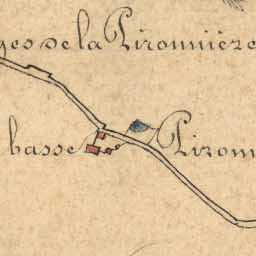 ges de la Pironnière
basse Pironn